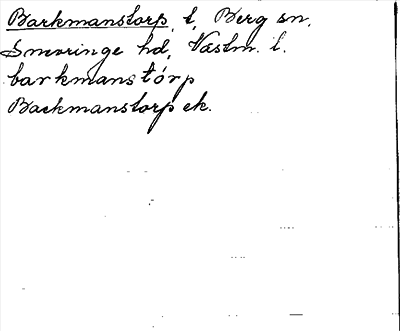 Barkmanstorp, t, Berg sn,
Snevringe hd, Västm. l.
barkmanstórp
Backmanstorp ek.